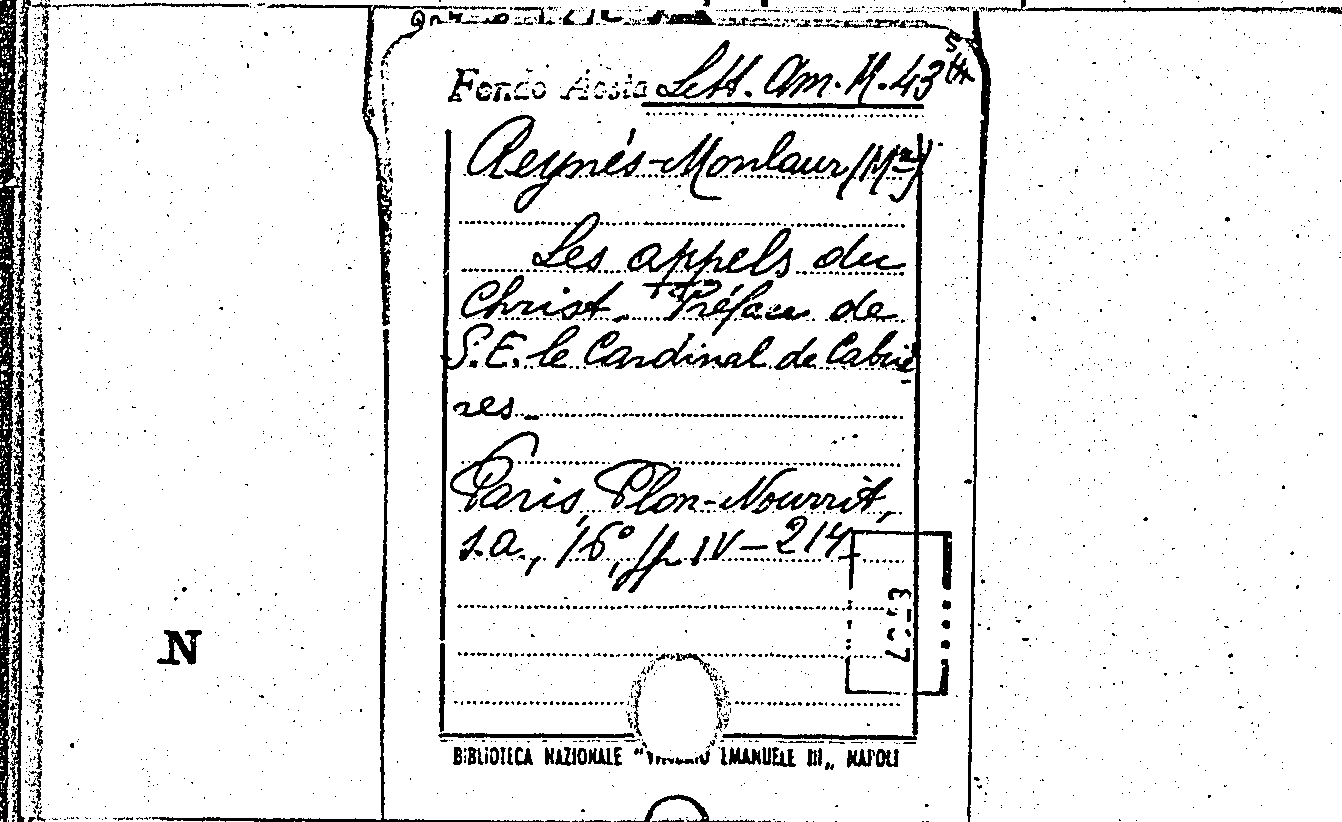 Fondo Aosta Lett. Am. M. 43
Reynés-Monlaur (Mme)
Les appels du
Christ. Préface de
S. E. le Cardinal de Cabriè
res_
Paris, Plon-Nourrit,
s.a., 16°, pp IV-214.
N
BIBLIOTECA NAZIONALE " EMANUELE III„ NAPOLI